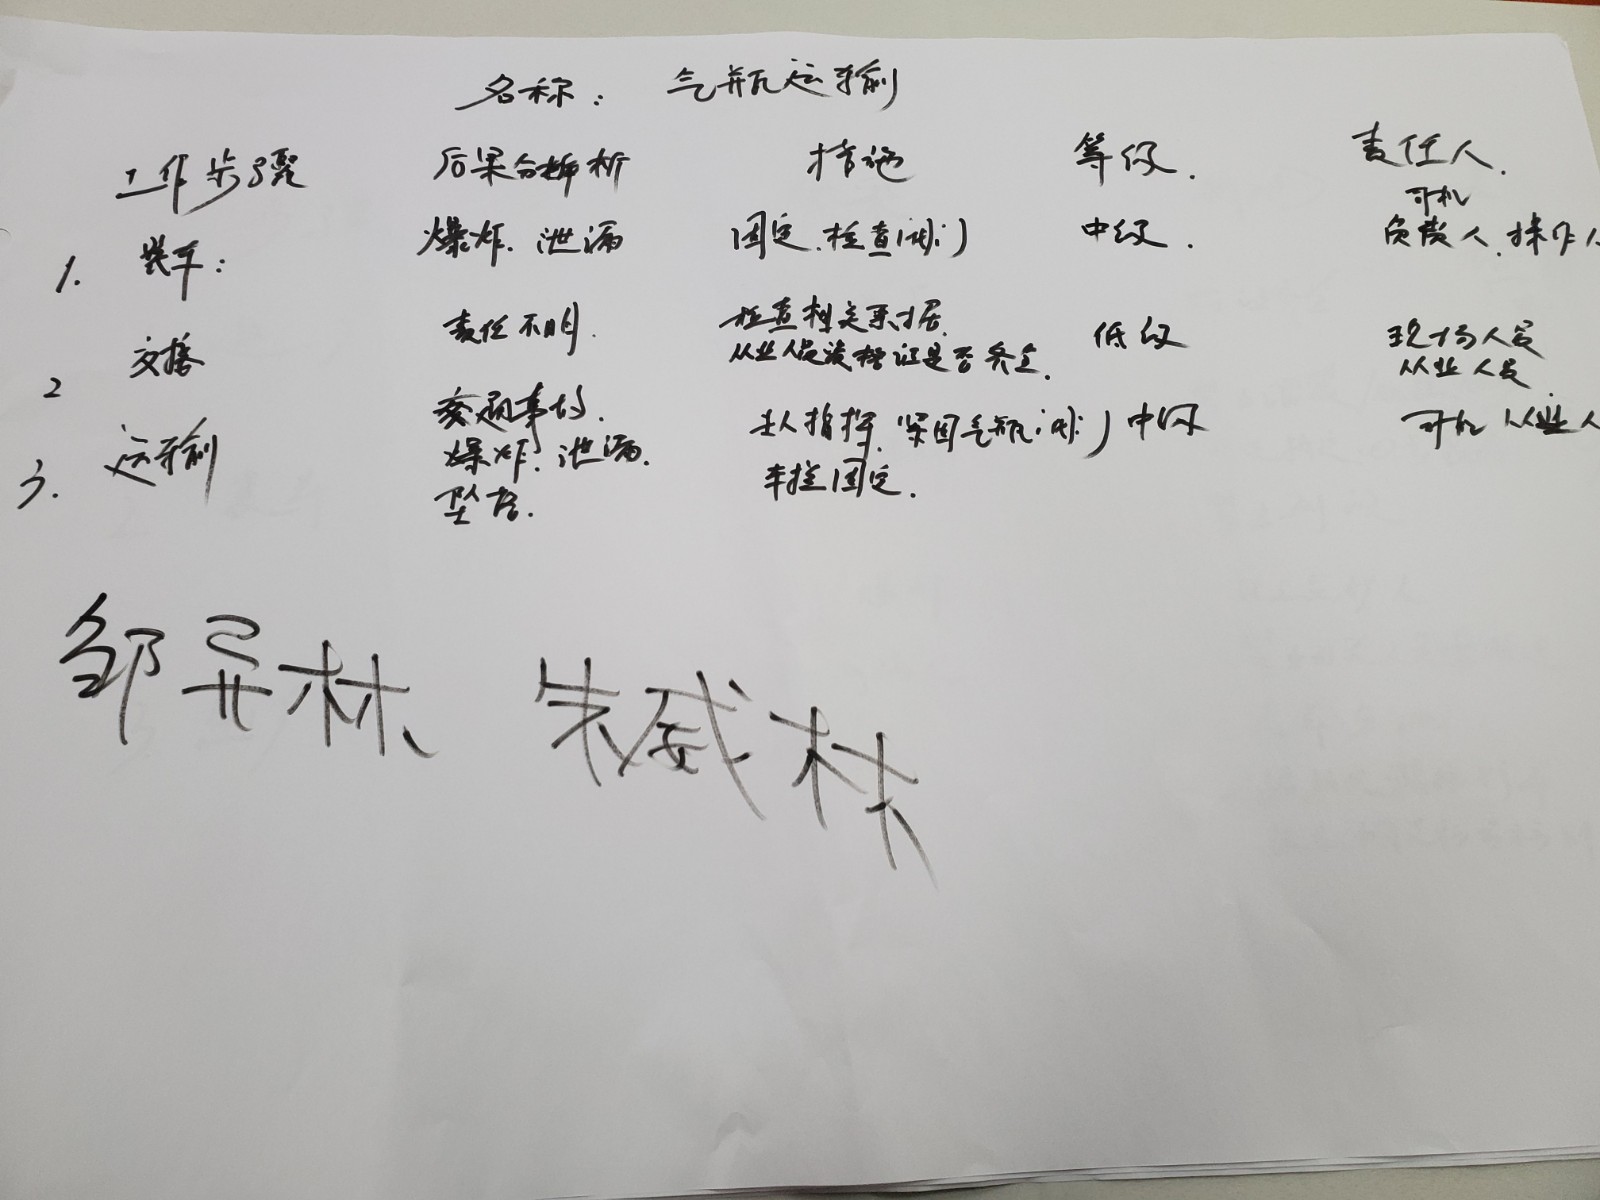 名称：气瓶运输
工作步骤 后果分析 措施 等级. 责任人.
司机
1. 装车： 爆炸.泄漏 固定.检查(漆) 中级. 负责人.操作人
2 交接 责任不明. 检查相关票据. 低级 现场人员
从业人员资格证是否齐全. 从业人员.
3. 运输 交通事故. 专人指挥.紧固气瓶 中级 司机 从业人
爆炸.泄漏. 车拦固定.
坠落.
邹异林 朱威林